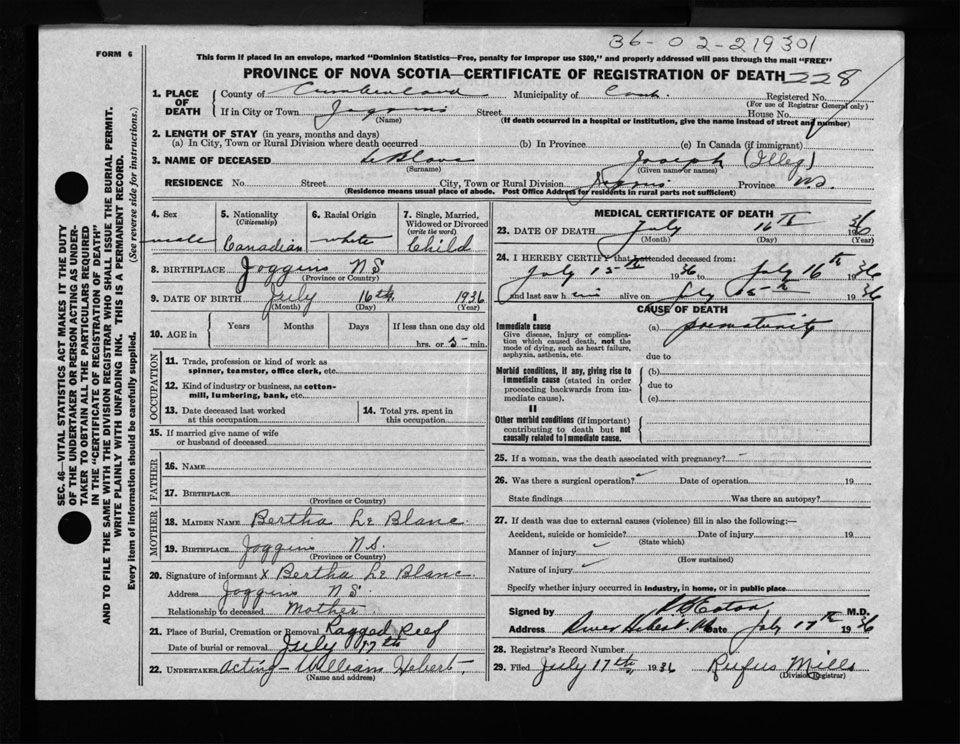 36-02-219301
FORM 6
This form if placed in an envelope, marked "Dominion Statistics—Free, penalty for improper use $300," and properly addressed will pass through the mail "FREE"
PROVINCE OF NOVA SCOTIA—CERTIFICATE OF REGISTRATION OF DEATH 228
1. PLACE OF DEATH
County of Cumberland Municipality of Cumb. Registered No.
(For use of Registrar General only)
If in City or Town Joggins Street House No.
(Name) (If death occurred in a hospital or institution, give the name instead of street and number)
2. LENGTH OF STAY (in years, months and days)
(a) In City, Town or Rural Division where death occurred (b) In Province (c) In Canada (if immigrant)
3. NAME OF DECEASED LeBlanc Joseph (Illeg)
(Surname) (Given name or names)
RESIDENCE No. Street City, Town or Rural Division Joggins Province NS
(Residence means usual place of abode. Post Office Address for residents in rural parts not sufficient)
4. Sex male
5. Nationality (Citizenship) Canadian
6. Racial Origin white
7. Single, Married, Widowed or Divorced (write the word) Child
8. BIRTHPLACE Joggins NS
(Province or Country)
9. DATE OF BIRTH July 16th 1936
(Month) (Day) (Year)
10. AGE in Years Months Days If less than one day old
hrs. or 5 min.
OCCUPATION
11. Trade, profession or kind of work as spinner, teamster, office clerk, etc.
12. Kind of industry or business, as cotton-mill, lumbering, bank, etc.
13. Date deceased last worked at this occupation
14. Total yrs. spent in this occupation
15. If married give name of wife or husband of deceased
FATHER
16. NAME
17. BIRTHPLACE
(Province or Country)
MOTHER
18. MAIDEN NAME Bertha Le Blanc
19. BIRTHPLACE Joggins N.S.
(Province or Country)
20. Signature of informant x Bertha Le Blanc
Address Joggins N S
Relationship to deceased Mother
21. Place of Burial, Cremation or Removal Ragged Reef
Date of burial or removal July 17th
22. UNDERTAKER Acting - William Hebert
(Name and address)
MEDICAL CERTIFICATE OF DEATH
23. DATE OF DEATH July 16th 1936
(Month) (Day) (Year)
24. I HEREBY CERTIFY that I attended deceased from:
July 15th 1936 to July 16th 1936
and last saw him alive on July 15th 1936
CAUSE OF DEATH
I
Immediate cause
Give disease, injury or complication which caused death, not the mode of dying, such as heart failure, asphyxia, asthenia, etc.
(a) prematurity
due to
Morbid conditions, if any, giving rise to immediate cause (stated in order proceeding backwards from immediate cause).
(b)
due to
(c)
II
Other morbid conditions (if important) contributing to death but not causally related to immediate cause.
25. If a woman, was the death associated with pregnancy?
26. Was there a surgical operation? Date of operation 19
State findings Was there an autopsy?
27. If death was due to external causes (violence) fill in also the following:—
Accident, suicide or homicide? Date of injury 19
(State which)
Manner of injury
(How sustained)
Nature of injury
Specify whether injury occurred in industry, in home, or in public place
Signed by Eaton M.D.
Address River Hebert NS Date July 17th 1936
28. Registrar's Record Number
29. Filed July 17th, 1936 Rufus Mills
(Division Registrar)
SEC. 46—VITAL STATISTICS ACT MAKES IT THE DUTY
OF THE UNDERTAKER OR PERSON ACTING AS UNDER-
TAKER TO OBTAIN ALL THE PARTICULARS REQUIRED
IN THE "CERTIFICATE OF REGISTRATION OF DEATH"
AND TO FILE THE SAME WITH THE DIVISION REGISTRAR WHO SHALL ISSUE THE BURIAL PERMIT.
WRITE PLAINLY WITH UNFADING INK. THIS IS A PERMANENT RECORD.
Every item of information should be carefully supplied. (See reverse side for instructions.)